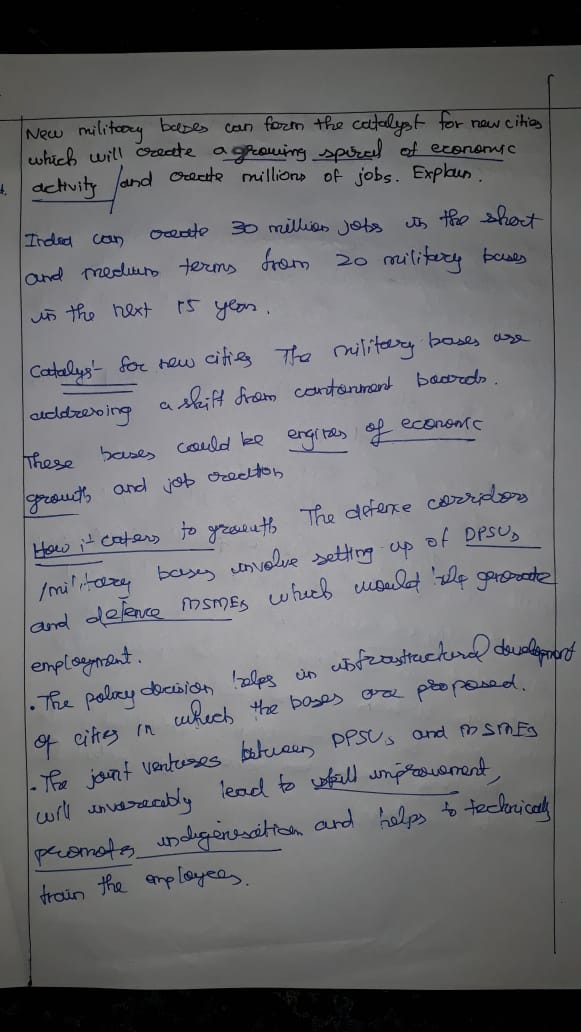 New military bases can form the catalyst for new cities
which will create a growing spiral of economic
activity and create millions of jobs. Explain.
India can create 30 million jobs in the short
and medium terms from 20 military bases
in the next 15 years.
Catalyst for new cities The military bases are
addressing a shift from cantonment boards.
These bases could be engines of economic
growth and job creation
How it caters to growth The defence corridors
/military bases involve setting up of DPSUs
and defence MSMEs which would help generate
employment.
. The policy decision helps in infrastructural development
of cities in which the bases are proposed.
. The joint ventures between DPSUs and MSMEs
will invariably lead to skill improvement,
promotes indigenisation and helps to technically
train the employees.